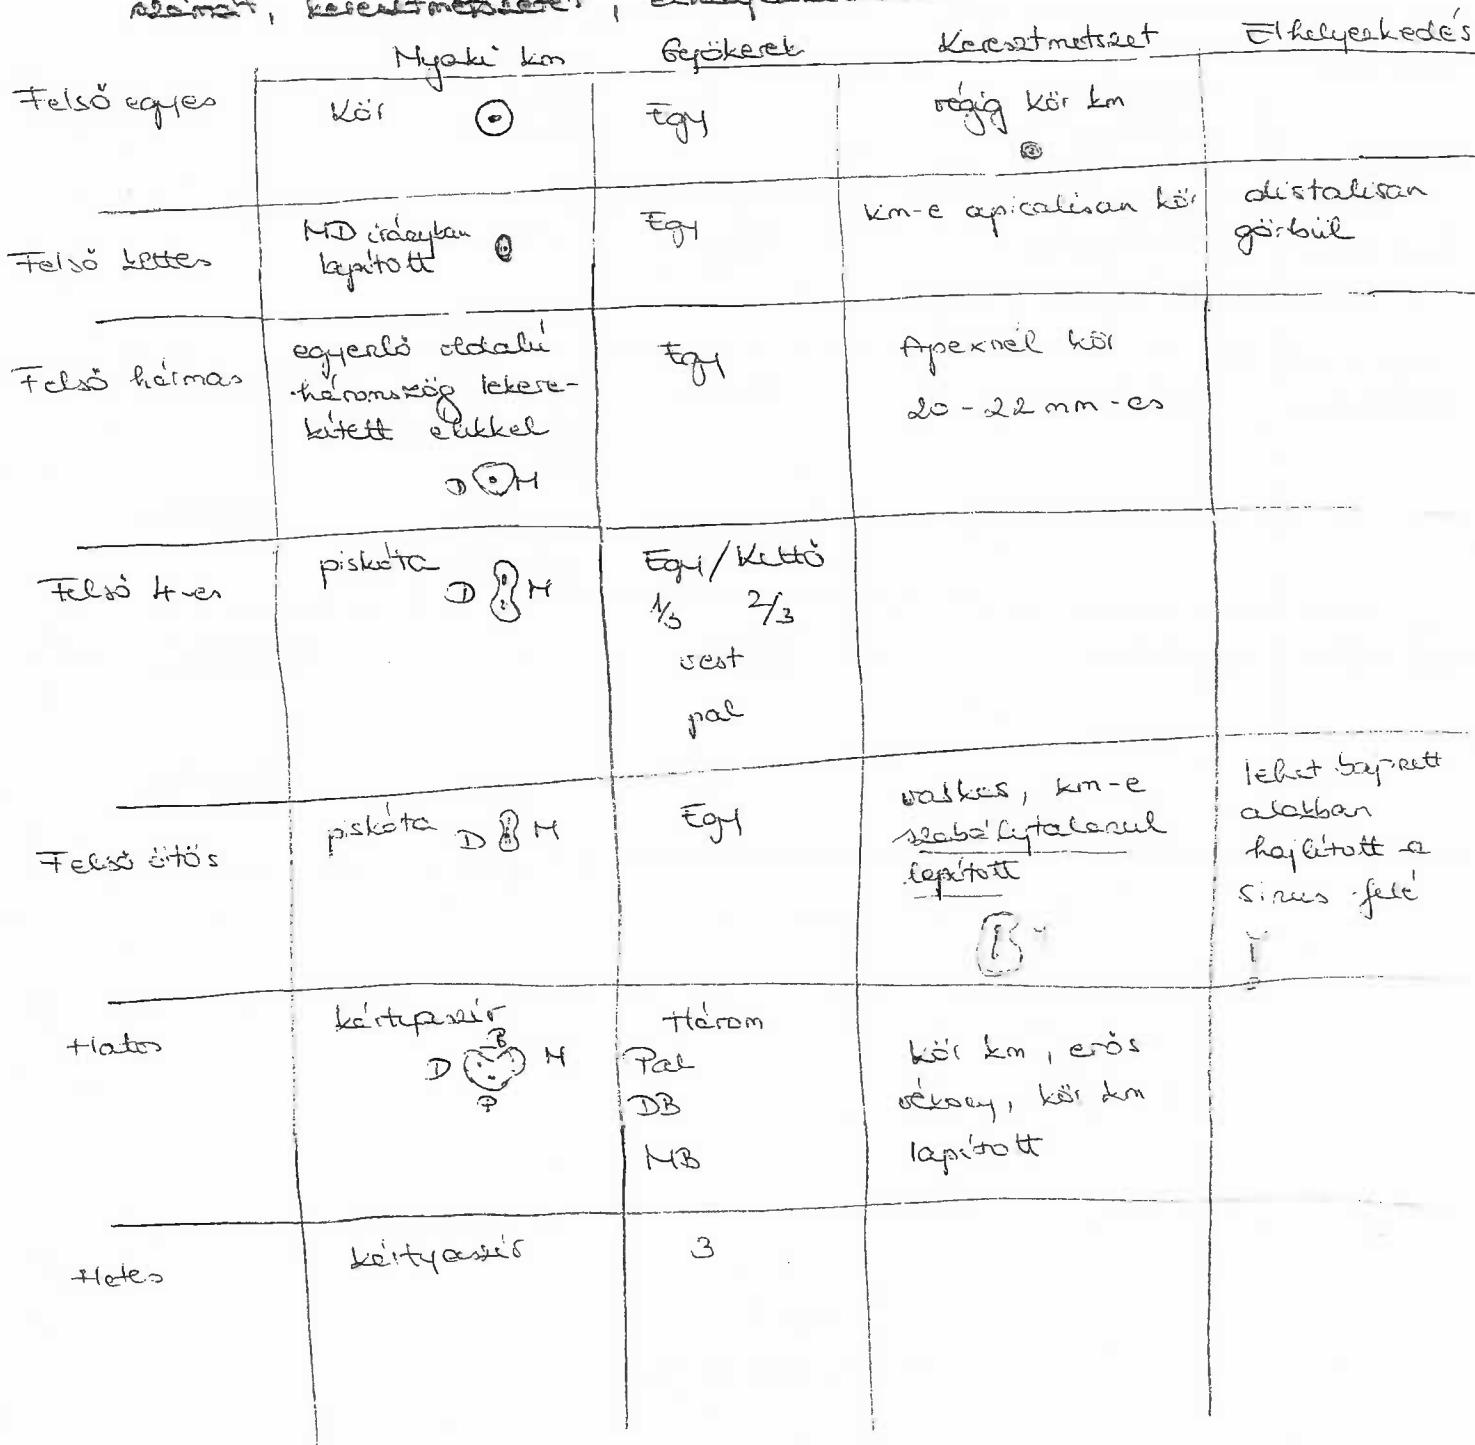 számát, keresztmetszetét,
Nyaki km Gyökerek Keresztmetszet Elhelyezkedés
Felső egyes
Kör
Egy
végig kör km
Felső kettes
MD irányban
lapított
Egy
km-e apicalisan kör
distalisan
görbül
Felső hármas
egyenlő oldalú
háromszög lekere-
kített élekkel
D M
Egy
Apexnél kör
20-22 mm-es
Felső 4-es
piskóta
D M
Egy/Kettő
1/3 2/3
vest
pal
Felső ötös
piskóta D M
Egy
vaskos, km-e
szabálytalanul
lapított
lehet
alakban
hajlított a
sinus felé
Hatos
kártyaszív
B
D M
P
Három
Pal
DB
MB
kör km, erős
vékony, kör km
lapított
Hetes
kártyaszív
3